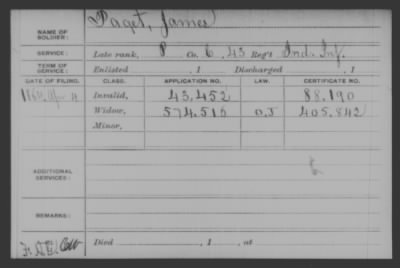 NAME OF SOLDIER: Paget, James
SERVICE: Late rank, P Co. C, 43 Reg't Ind. Inf.
TERM OF SERVICE: Enlisted , 1 Discharged , 1
DATE OF FILING. CLASS. APPLICATION NO. LAW. CERTIFICATE NO.
Invalid, 43,452 88,190
Widow, 574,515 O.J 405,842
Minor,
ADDITIONAL SERVICES:
REMARKS:
Died , 1 , at